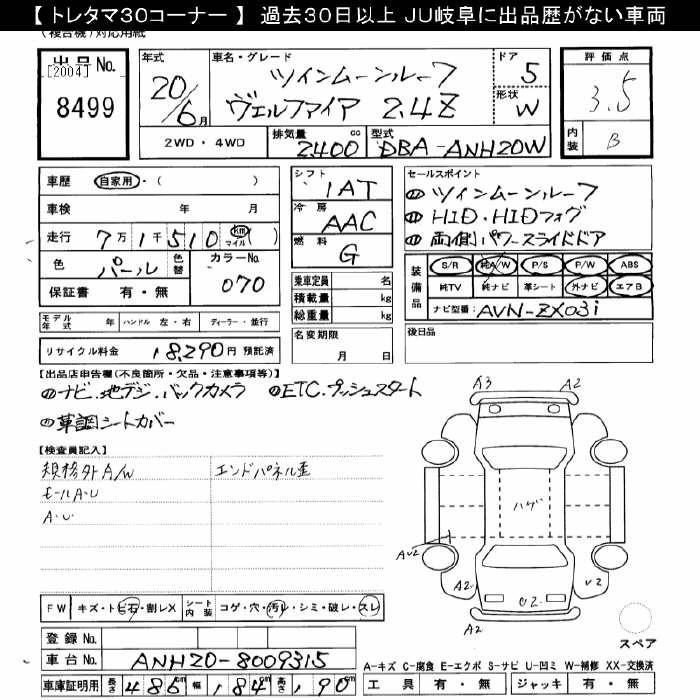 【 トレタマ30コーナー 】 過去30日以上 JU岐阜に出品歴がない車両
(複合機)対応用紙
出品 No. [2004] 8499
年式 20/6月
車名・グレード ツインムーンルーフ ヴェルファイア 2.4Z
ドア 5
形状 W
評価点 3.5
内装 B
2WD・4WD
排気量 2400 cc
型式 DBA-ANH20W
車歴 自家用・( )
車検 年 月
走行 7万1千510 km マイル ( )
色 パール 色替
カラーNo. 070
保証書 有・無
シフト IAT
冷房 AAC
燃料 G
乗車定員 名
積載量 kg
総重量 kg
セールスポイント
ツインムーンルーフ
HID・HIDフォグ
両側パワースライドドア
装備品 S/R 純A/W P/S P/W ABS
純TV 純ナビ 革シート 外ナビ エアB
ナビ型番: AVN-ZX03i
モデル年式 年 ハンドル 左・右 ディーラー・並行
名変期限 月 日
後日品
リサイクル料金 18,290円 預託済
【出品店申告欄(不良箇所・欠品・注意事項等)】
ナビ.地デジ.バックカメラ ETC.プッシュスタート
革調シートカバー
【検査員記入】
規格外A/W エンドパネル歪
モールA・U
A・U
A3 A2
ハゲ
AU2
A2 U2 U2
A2
FW キズ・トビ石・割レX シート内装 コゲ・穴・汚レ・シミ・破レ・スレ
スペア
登録 No.
車台 No. ANH20-8009315
A-キズ C-腐食 E-エクボ S-サビ U-凹ミ W-補修 XX-交換済
車庫証明用 長さ 486cm 幅 184cm 高さ 190cm
工具 有・無 ジャッキ 有・無